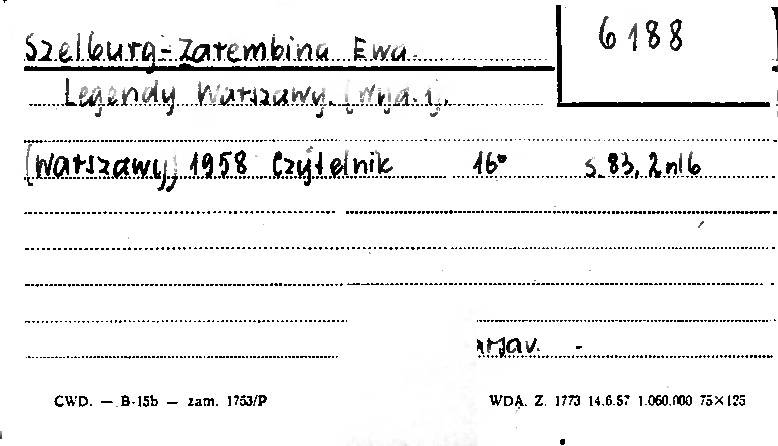 6188
Szelburg-Zarembina Ewa.
Legendy Warszawy. [Wyd. 1].
[Warszawy] 1958 Czytelnik 16° s. 83, 2 nlb
CWD. — B-15b — zam. 1753/P
WDA. Z. 1773 14.6.57 1.060.000 75×125